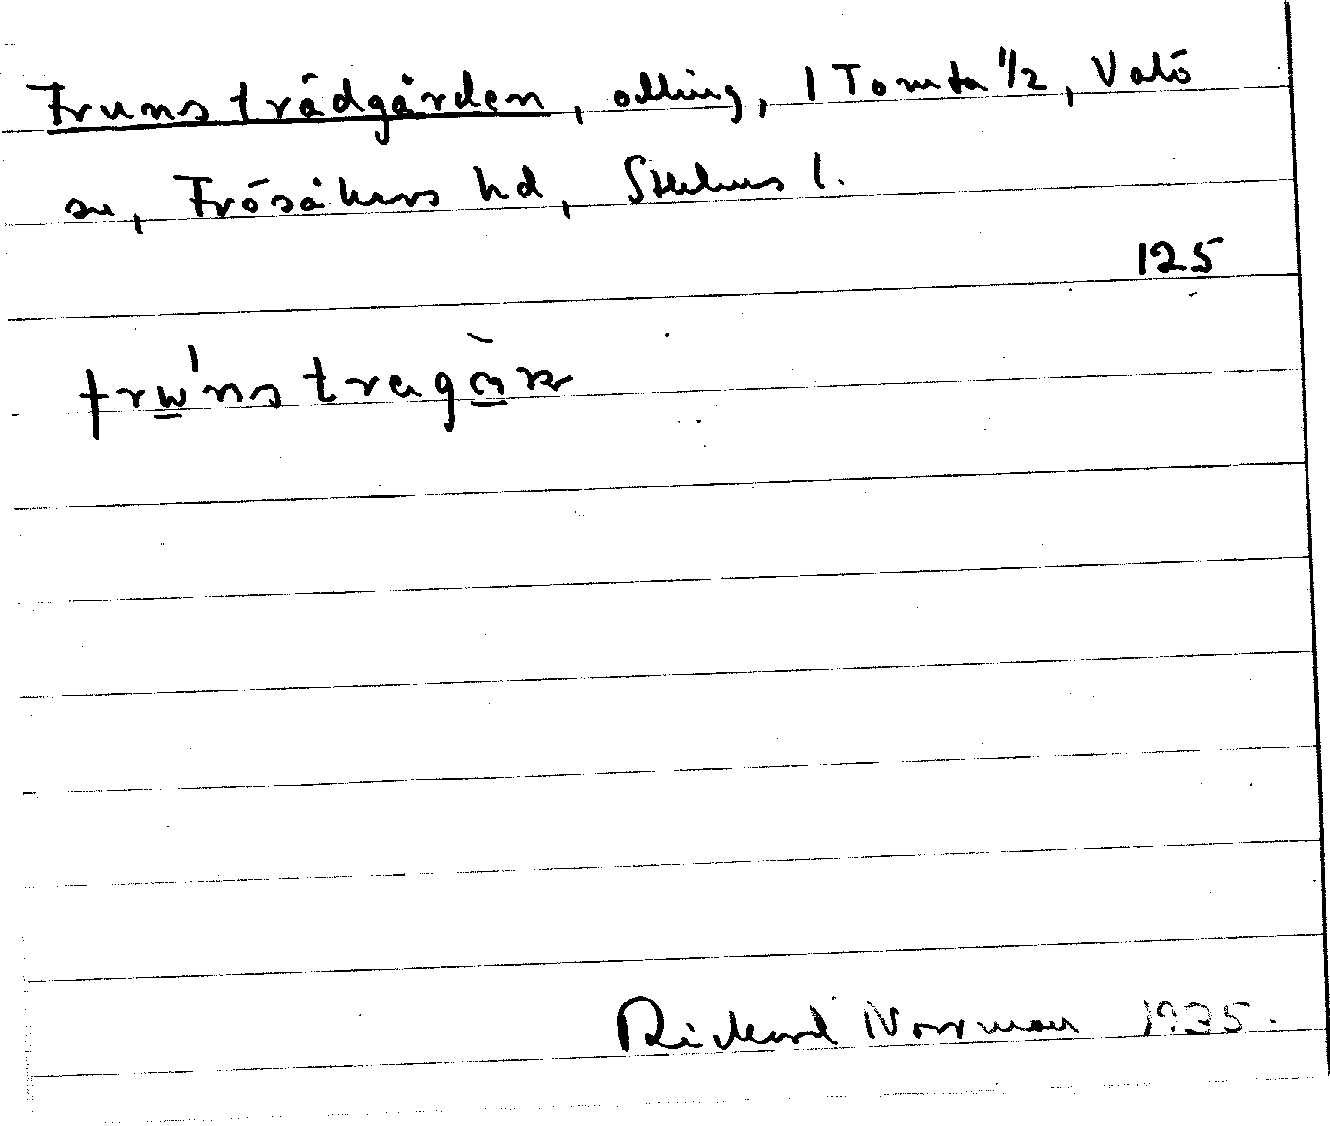 Fruns trädgården, odling, 1 Tomta 1/2, Valö
sn, Frösåkers hd, Sthlms l.
125
frw'ns tragàr
Rickard Norrman 1935.